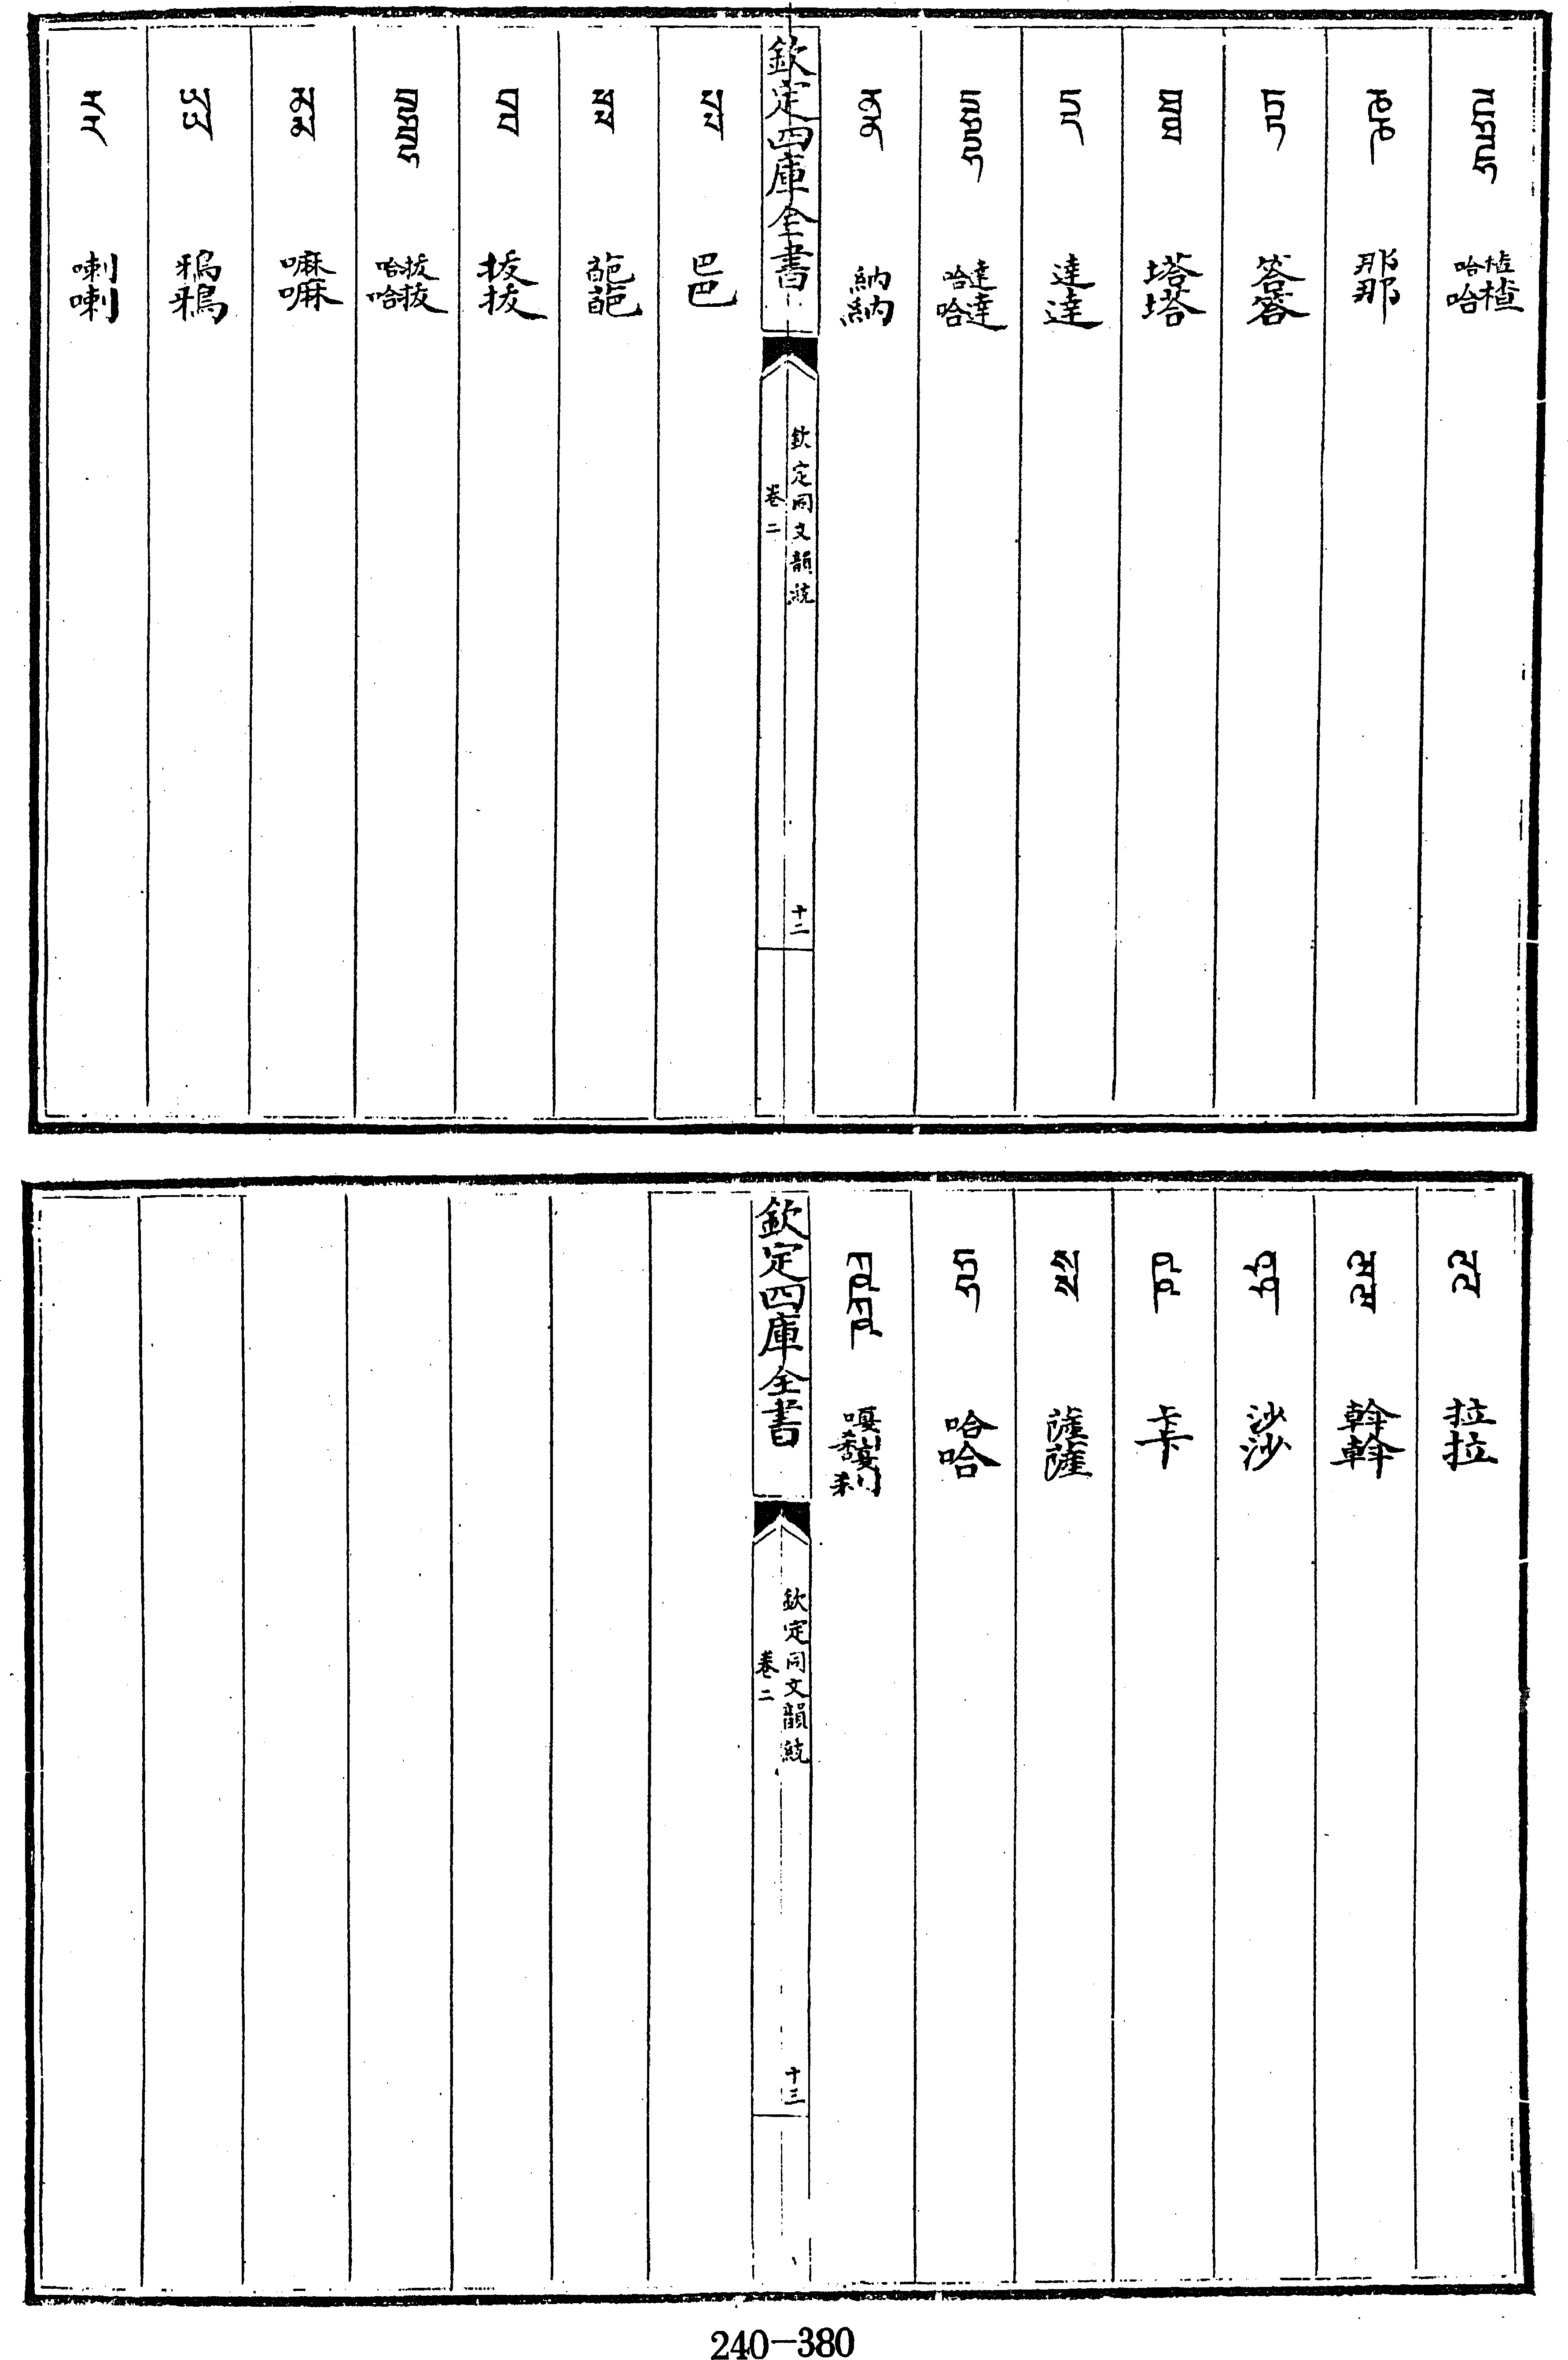 ཌྷྜྷ 楂哈楂哈
ཎྞ 那那
ཏྟ 答答
ཐྠ 塔塔
དྡ 達達
དྷྡྷ 達哈達哈
ནྣ 納納
欽定四庫全書
欽定同文韻統
卷二
十二
པྤ 巴巴
ཕྥ 葩葩
བྦ 拔拔
བྷྦྷ 拔哈拔哈
མྨ 嘛嘛
ཡྻ 鴉鴉
རྼ 喇喇
ལླ 拉拉
ཝྺ 斡斡
ཤྴ 沙沙
ཥྵ 卡卡
སྶ 薩薩
ཧྷ 哈哈
ཀྵྐྵ 嘎刹嘎刹
欽定四庫全書
欽定同文韻統
卷二
十三
240-380